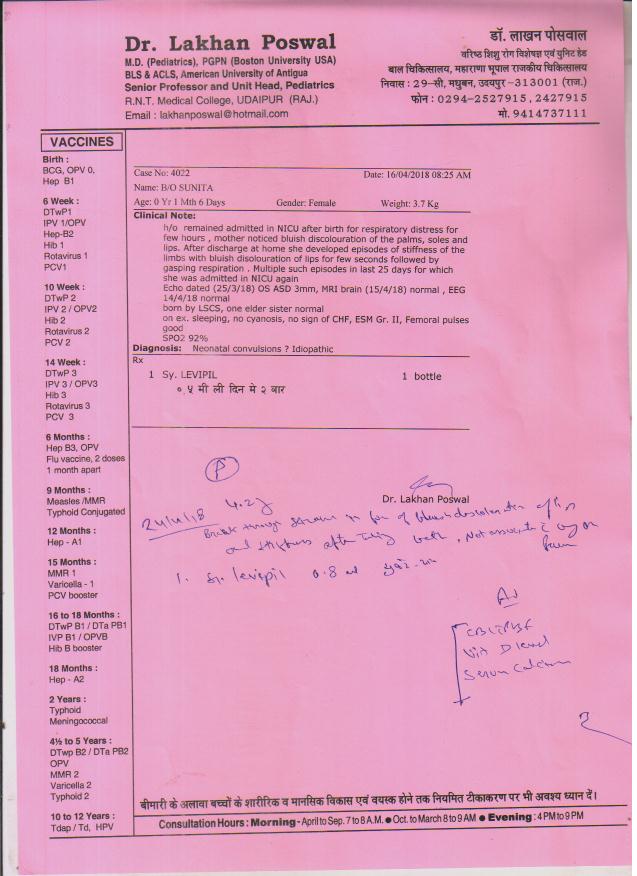 Dr. Lakhan Poswal
M.D. (Pediatrics), PGPN (Boston University USA)
BLS & ACLS, American University of Antigua
Senior Professor and Unit Head, Pediatrics
R.N.T. Medical College, UDAIPUR (RAJ.)
Email : lakhanposwal@hotmail.com
डॉ. लाखन पोसवाल
वरिष्ठ शिशु रोग विशेषज्ञ एवं यूनिट हेड
बाल चिकित्सालय, महाराणा भूपाल राजकीय चिकित्सालय
निवास : 29-सी, मधुबन, उदयपुर-313001 (राज.)
फोन : 0294-2527915, 2427915
मो. 9414737111
VACCINES
Birth :
BCG, OPV 0,
Hep B1
6 Week :
DTwP1
IPV 1/OPV
Hep-B2
Hib 1
Rotavirus 1
PCV1
10 Week :
DTwP 2
IPV 2 / OPV2
Hib 2
Rotavirus 2
PCV 2
14 Week :
DTwP 3
IPV 3 / OPV3
Hib 3
Rotavirus 3
PCV 3
6 Months :
Hep B3, OPV
Flu vaccine, 2 doses
1 month apart
9 Months :
Measles /MMR
Typhoid Conjugated
12 Months :
Hep - A1
15 Months :
MMR 1
Varicella - 1
PCV booster
16 to 18 Months :
DTwP B1 / DTa PB1
IVP B1 / OPVB
Hib B booster
18 Months :
Hep - A2
2 Years :
Typhoid
Meningococcal
4½ to 5 Years :
DTwp B2 / DTa PB2
OPV
MMR 2
Varicella 2
Typhoid 2
10 to 12 Years :
Tdap / Td, HPV
Case No: 4022 Date: 16/04/2018 08:25 AM
Name: B/O SUNITA
Age: 0 Yr 1 Mth 6 Days Gender: Female Weight: 3.7 Kg
Clinical Note:
h/o remained admitted in NICU after birth for respiratory distress for
few hours , mother noticed bluish discolouration of the palms, soles and
lips. After discharge at home she developed episodes of stiffness of the
limbs with bluish disolouration of lips for few seconds followed by
gasping respiration . Multiple such episodes in last 25 days for which
she was admitted in NICU again
Echo dated (25/3/18) OS ASD 3mm, MRI brain (15/4/18) normal , EEG
14/4/18 normal
born by LSCS, one elder sister normal
on ex. sleeping, no cyanosis, no sign of CHF, ESM Gr. II, Femoral pulses
good
SPO2 92%
Diagnosis: Neonatal convulsions ? Idiopathic
Rx
1 Sy. LEVIPIL 1 bottle
०.५ मी ली दिन मे २ बार
P
Dr. Lakhan Poswal
24/4/18
Break through of bluish discoloration of
and stiffness after bath, Not
1. Sy. levipil 0.8 ml
Adv
Vit D level
Serum Calcium
बीमारी के अलावा बच्चों के शारीरिक व मानसिक विकास एवं वयस्क होने तक नियमित टीकाकरण पर भी अवश्य ध्यान दें।
Consultation Hours : Morning - April to Sep. 7 to 8 A.M. ● Oct. to March 8 to 9 AM ● Evening : 4 PM to 9 PM